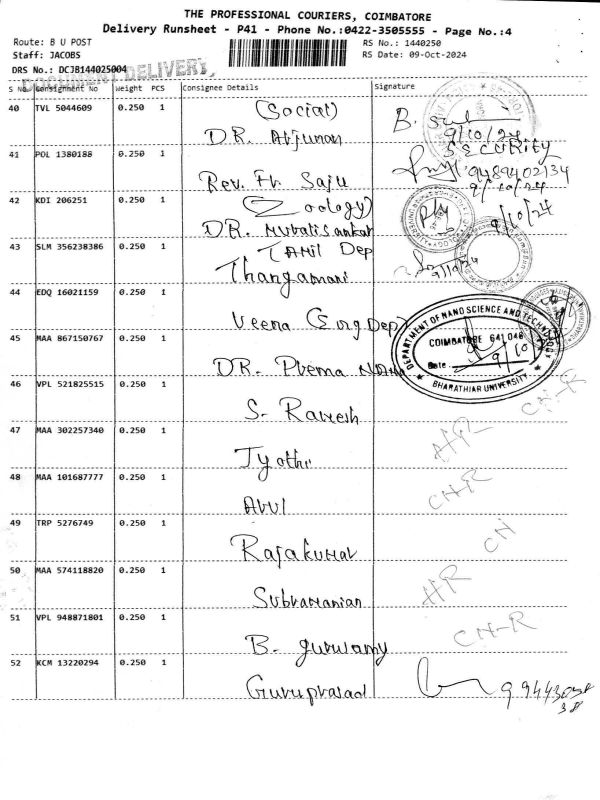 THE PROFESSIONAL COURIERS, COIMBATORE
Delivery Runsheet - P41 - Phone No.:0422-3505555 - Page No.:4
Route: B U POST
RS No.: 1440250
Staff: JACOBS
RS Date: 09-Oct-2024
DRS No.: DCJB144025004
DOCUMENT DELIVERY
S No Consignment No Weight PCS Consignee Details Signature
40 TVL 5044609 0.250 1 (Social)
DR. Arjunan
9/10/24
SECURITY
41 POL 1380188 0.250 1
Rev. Fr. Saju
9489402134
9/10/24
42 KDI 206251 0.250 1 (Zoology)
DR. Muralisankar
9/10/24
43 SLM 356238386 0.250 1 TAMIL Dep
Thangamani
9/10/24
44 EDQ 16021159 0.250 1
Veena (Eng Dep)
45 MAA 867150767 0.250 1
DR. Prema
DEPARTMENT OF NANO SCIENCE AND TECHNOLOGY
COIMBATORE 641 046
Date
9/10
BHARATHIAR UNIVERSITY
46 VPL 521825515 0.250 1
S. Ramesh
CN-R
47 MAA 302257340 0.250 1
Jyothi
HR
48 MAA 101687777 0.250 1
Arul
CN-R
49 TRP 5276749 0.250 1
Rajakumar
CN
50 MAA 574118820 0.250 1
Subramanian
HR
51 VPL 948871801 0.250 1
B. gurusamy
CN-R
52 KCM 13220294 0.250 1
Guruprasad